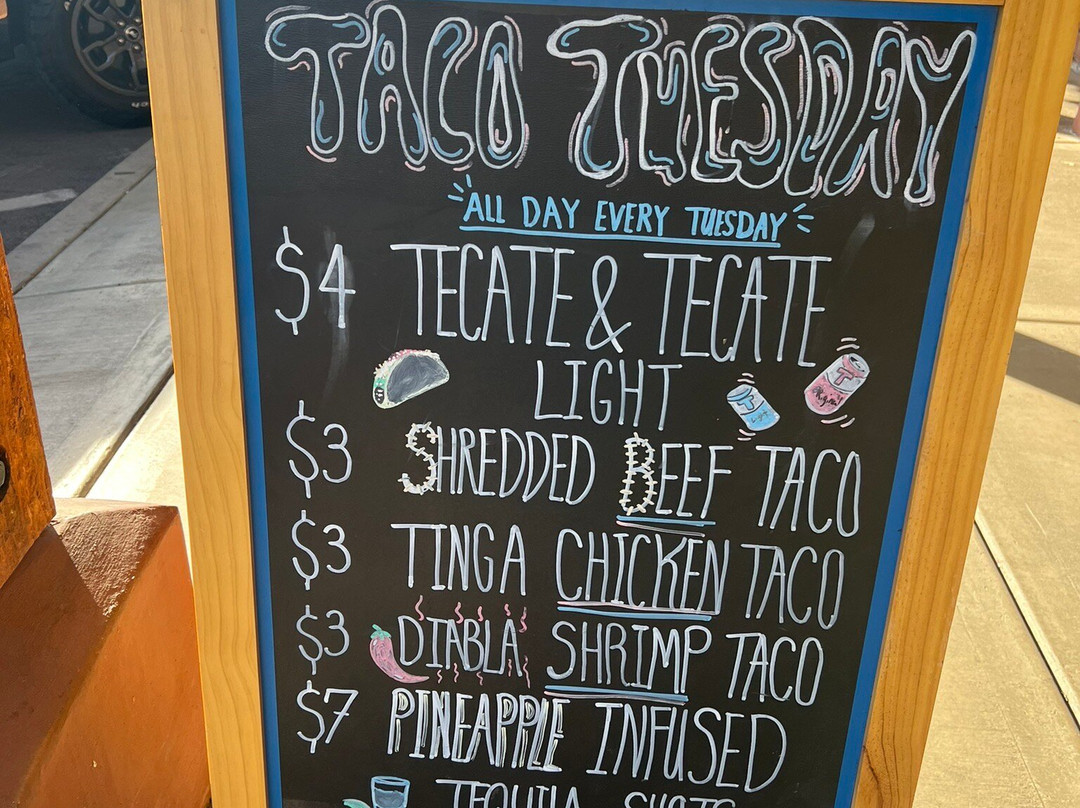 TACO TUESDAY
ALL DAY EVERY TUESDAY
$4 TECATE & TECATE
LIGHT
$3 SHREDDED BEEF TACO
$3 TINGA CHICKEN TACO
$3 DIABLA SHRIMP TACO
$7 PINEAPPLE INFUSED
TEQUILA SHOTS